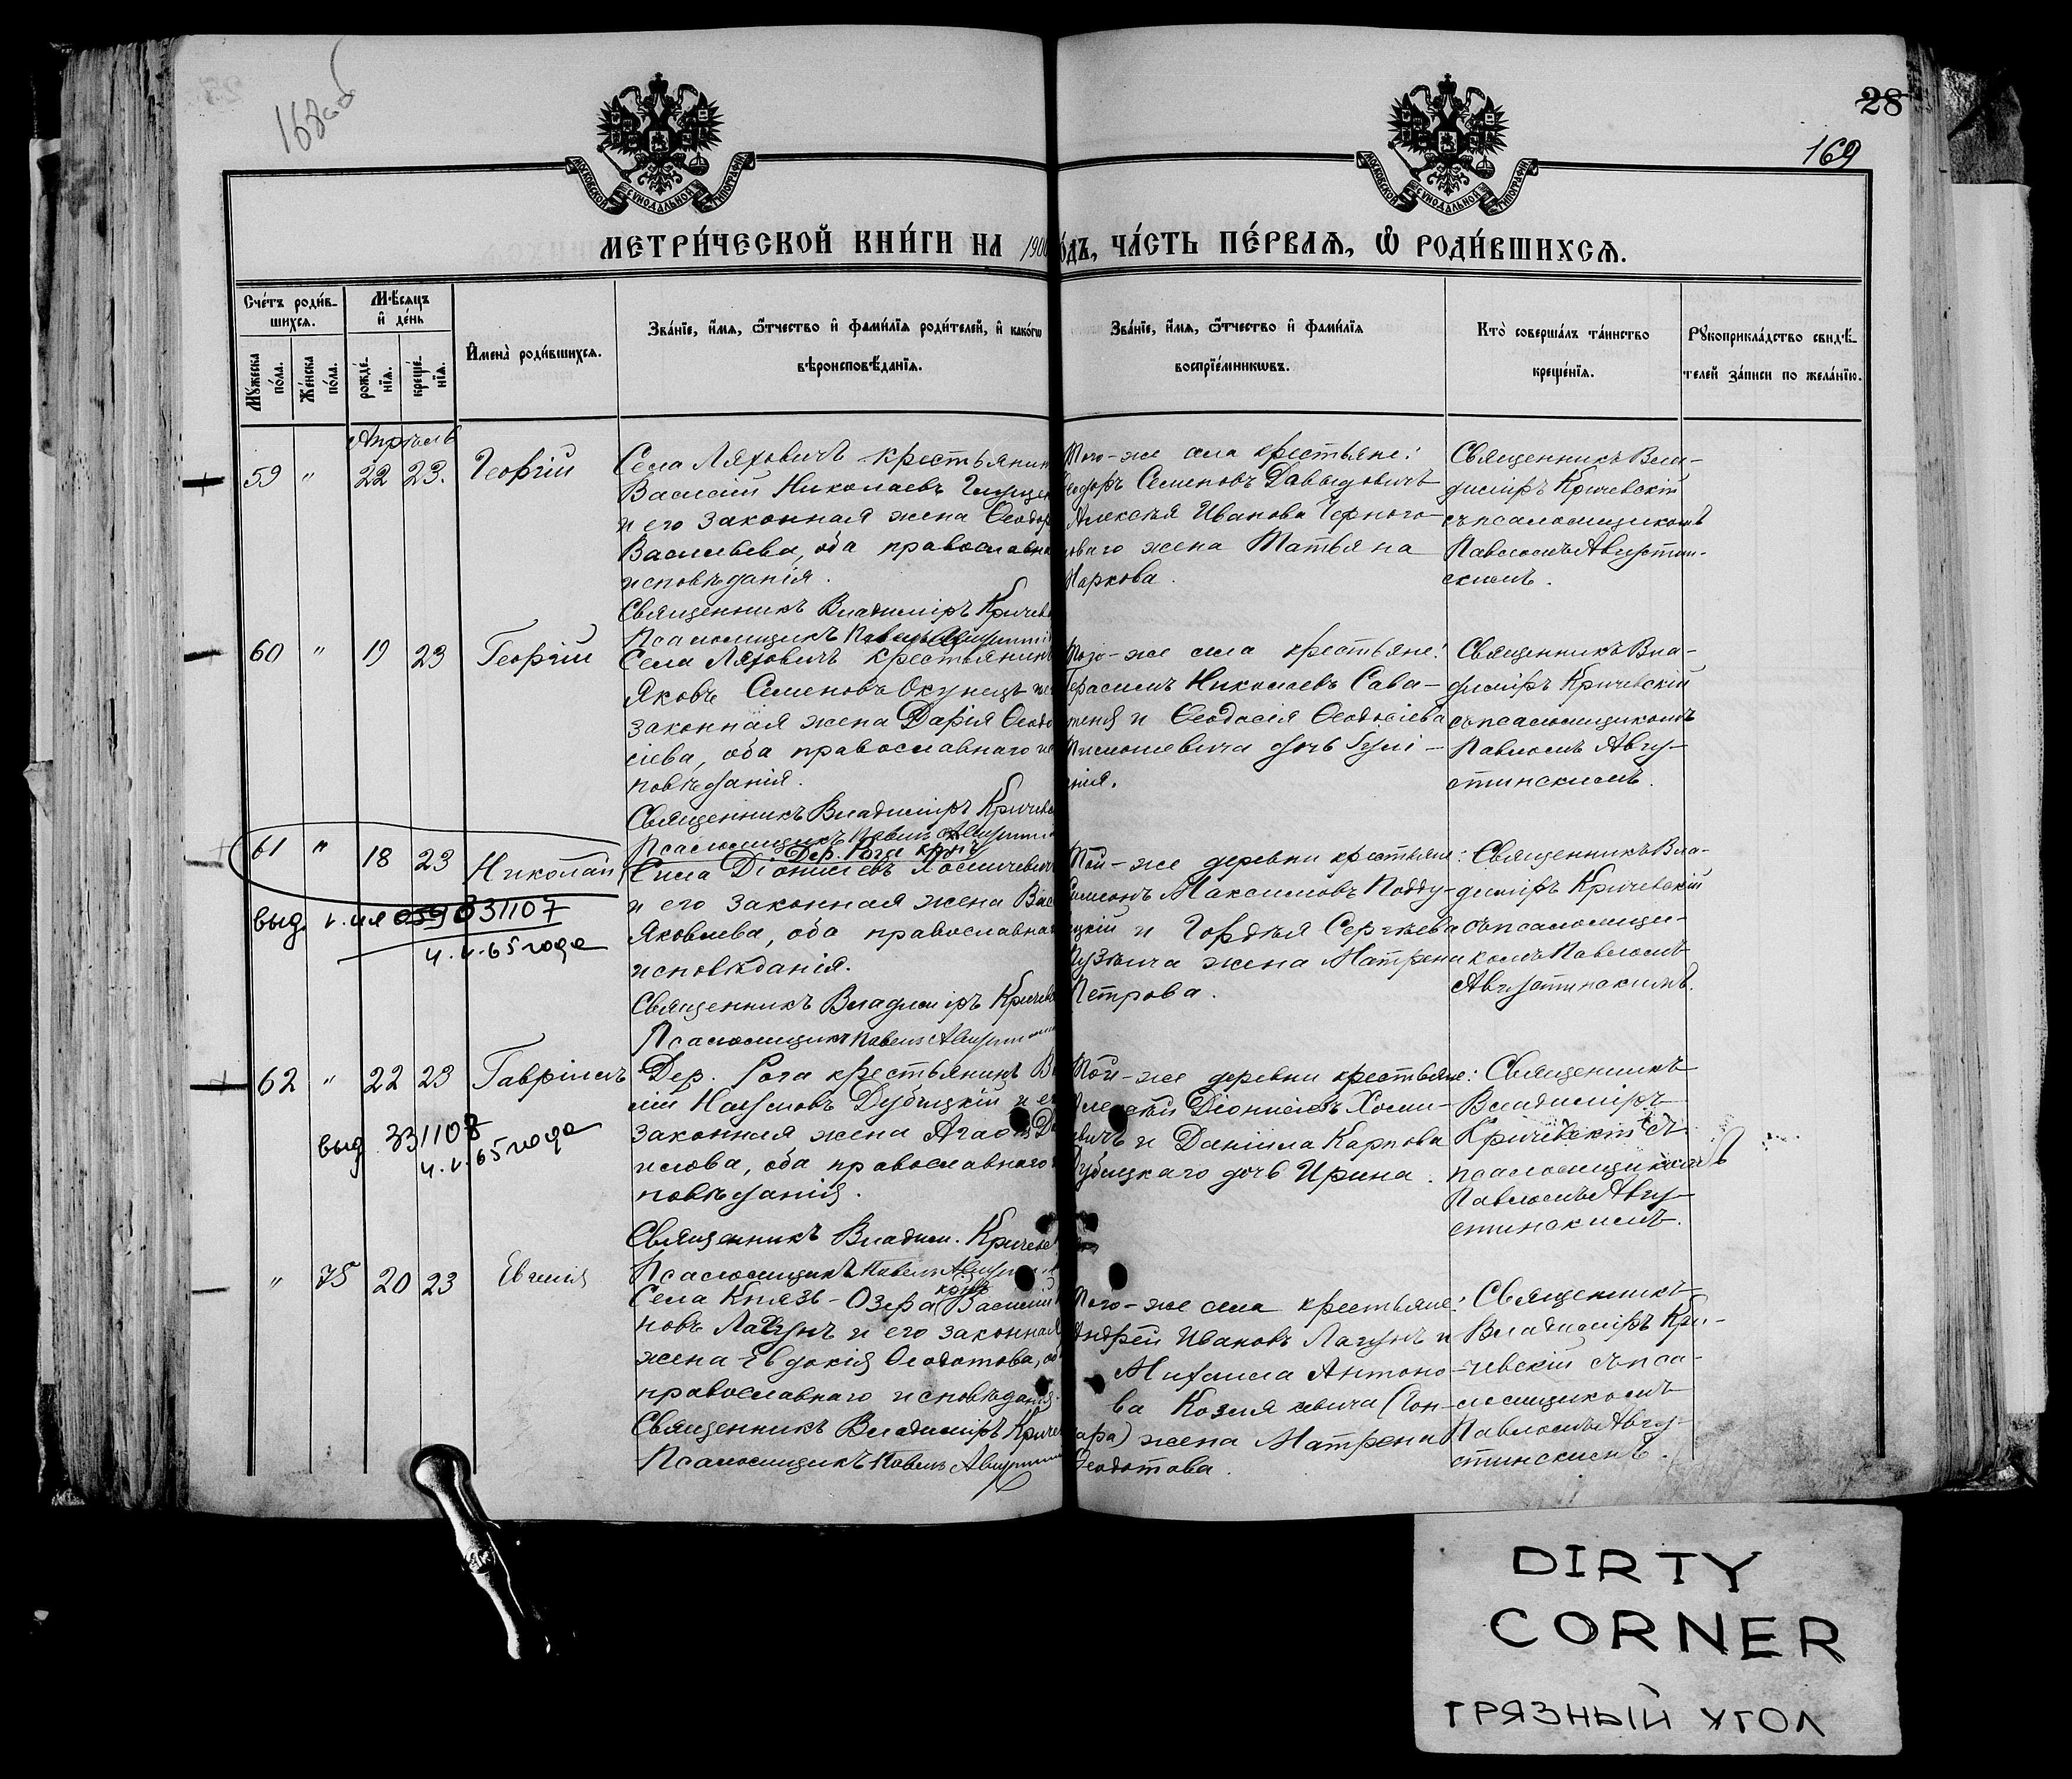 168об
28
169
МОСКОВСКОЙ СѴНОДАЛЬНОЙ ТИПОГРАФІИ
МОСКОВСКОЙ СѴНОДАЛЬНОЙ ТИПОГРАФІИ
МЕТРИ́ЧЕСКОЙ КНИ́ГИ НА 1900 ГО́ДЪ, ЧА́СТЬ ПЕ́РВАѦ, Ѡ РОДИ́ВШИХСѦ.
Сче́тъ роди́в-
шихсѧ.
Мꙋ́жеска по́ла.
Же́нска по́ла.
Мѣ́сѧцъ и҆ де́нь
рожде́нїѧ.
креще́нїѧ.
И҆мена̀ роди́вшихсѧ.
Зва́нїе, и҆́мѧ, ѻ҆́тчество и҆ фами́лїѧ роди́телей, и҆ како́гѡ
вѣроисповѣ́данїѧ.
Зва́нїе, и҆́мѧ, ѻ҆́тчество и҆ фами́лїѧ
воспрїе́мникѡвъ.
Кто̀ соверша́лъ та́инство
креще́нїѧ.
Рꙋкоприкла́дство свидѣ́-
телей за́писи по жела́нїю.
Апрѣль
59 " 22 23. Георгій
Села Ляховичъ крестьянин
Василій Николаевъ
и его законная жена Ѳеодор
Васильева, оба православна
исповѣданія.
Священникъ Владиміръ Кричев
Псаломщикъ Павелъ Августин
Того-же села крестьяне:
Ѳеодоръ Семеновъ Давыдовичъ
Алексѣя Иванова Черного-
лова́го жена Татьяна
Маркова.
Священникъ Вла-
диміръ Кричевскій
съ псаломщикомъ
Павломъ Августин-
скимъ.
60 " 19 23 Георгій
Села Ляховичъ крестьянинъ
Яковъ Семеновъ Окунецъ и е
законная жена Дарія Ѳеодо
сіева, оба православнаго ис
повѣданія.
Священникъ Владиміръ Кричевс
Псаломщикъ Павелъ Августин
Того-же села крестьяне:
Герасимъ Николаевъ Сава-
теня и Ѳеодосія Ѳеодосіева
дочь
Священникъ Вла-
диміръ Кричевскій
съ псаломщикомъ
Павломъ Авгу-
стинскимъ.
61 " 18 23 Николай
Дер. Рога крнъ
Сила Діонисіевъ Хомичевич
и его законная жена Вас
Яковлева, оба православнаг
исповѣданія.
Священникъ Владиміръ Кричев
Псаломщикъ Павелъ Августин
Той-же деревни крестьяне:
Симеонъ Максимовъ Подду-
и Гордѣя Сергѣева
жена Матрена
Петрова.
Священникъ Вла-
диміръ Кричевскій
съ псаломщи-
комъ Павломъ
Августинскимъ.
выд 031107
65 года
62 " 22 23 Гавріилъ
Дер. Рога крестьянинъ Ва
лій Наумовъ Дубицкій и ег
законная жена Агаѳія Да
нилова, оба православнаго
повѣданія.
Священникъ Владим. Кричевс
Псаломщикъ Павелъ Августин
Той-же деревни крестьяне:
Алексѣй Діонисіевъ Хоми-
чевичъ и Даніила Карпова
Дубицкаго дочь Ирина.
Священникъ
Владиміръ
Кричевскій съ
псаломщикомъ
Павломъ Авгу-
стинскимъ.
выд 331108
65 года
" 75 20 23 Евгенія
крнъ
Села Князь-Озера Василій
новъ Лагунъ и его законная
жена Евдокія Ѳеодотова, об
православнаго исповѣданія.
Священникъ Владиміръ Кричев
Псаломщикъ Павелъ Августин
Того-же села крестьяне:
Андрей Ивановъ Лагунъ и
Михаила Антоно-
ва Козлякевича (Гон-
чара) жена Матрена
Ѳеодотова.
Священникъ
Владиміръ Кри-
чевскій съ пса-
ломщикомъ
Павломъ Авгу-
стинскимъ.
DIRTY
CORNER
ГРЯЗНЫЙ УГОЛ